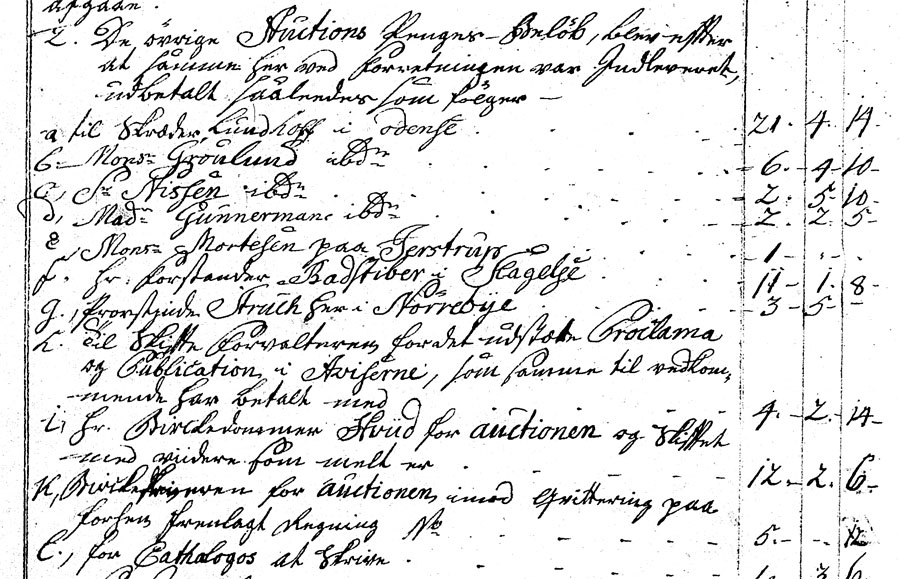 afgaae.
2. De övrige Auctions Penges-Beløb, blev efter
at samme her ved Forretningen var Indleveret,
udbetalt saaleedes som følger —
a til Skræder Lundhoff i odense . . . 21. 4. 14
b. Mons: Grönlund ibdn . . . 6. 4 10
c, Sr. Nissen ibdn . . . 2. 5 10
d, Madm Gunnerman ibdn . . . 2. 2 5
e, Mons: Mortesen paa Ferstrup . . . 1 - -
f. hr. Forstander Badstiber i Slagelse . . . 11 1. 8
g., Prorstinde Struch her i Nörrebye . . . 3 - 5 -
h. Til Skifte Forvalteren for det udstæte Proclama
og Publication i Aviserne, som samme til vedkom-
mende har betalt med . . . 4. - 2. 14
i, hr. Birckedommer Hvid for auctionen og Skiftet
med viidere som melt er . . . 12. - 2. 6
K, Birckeskriveren for auctionen imod Qvittering paa
forhen fremlagt Regning . . . 5. - -
l., for Cathologos at Skrive .